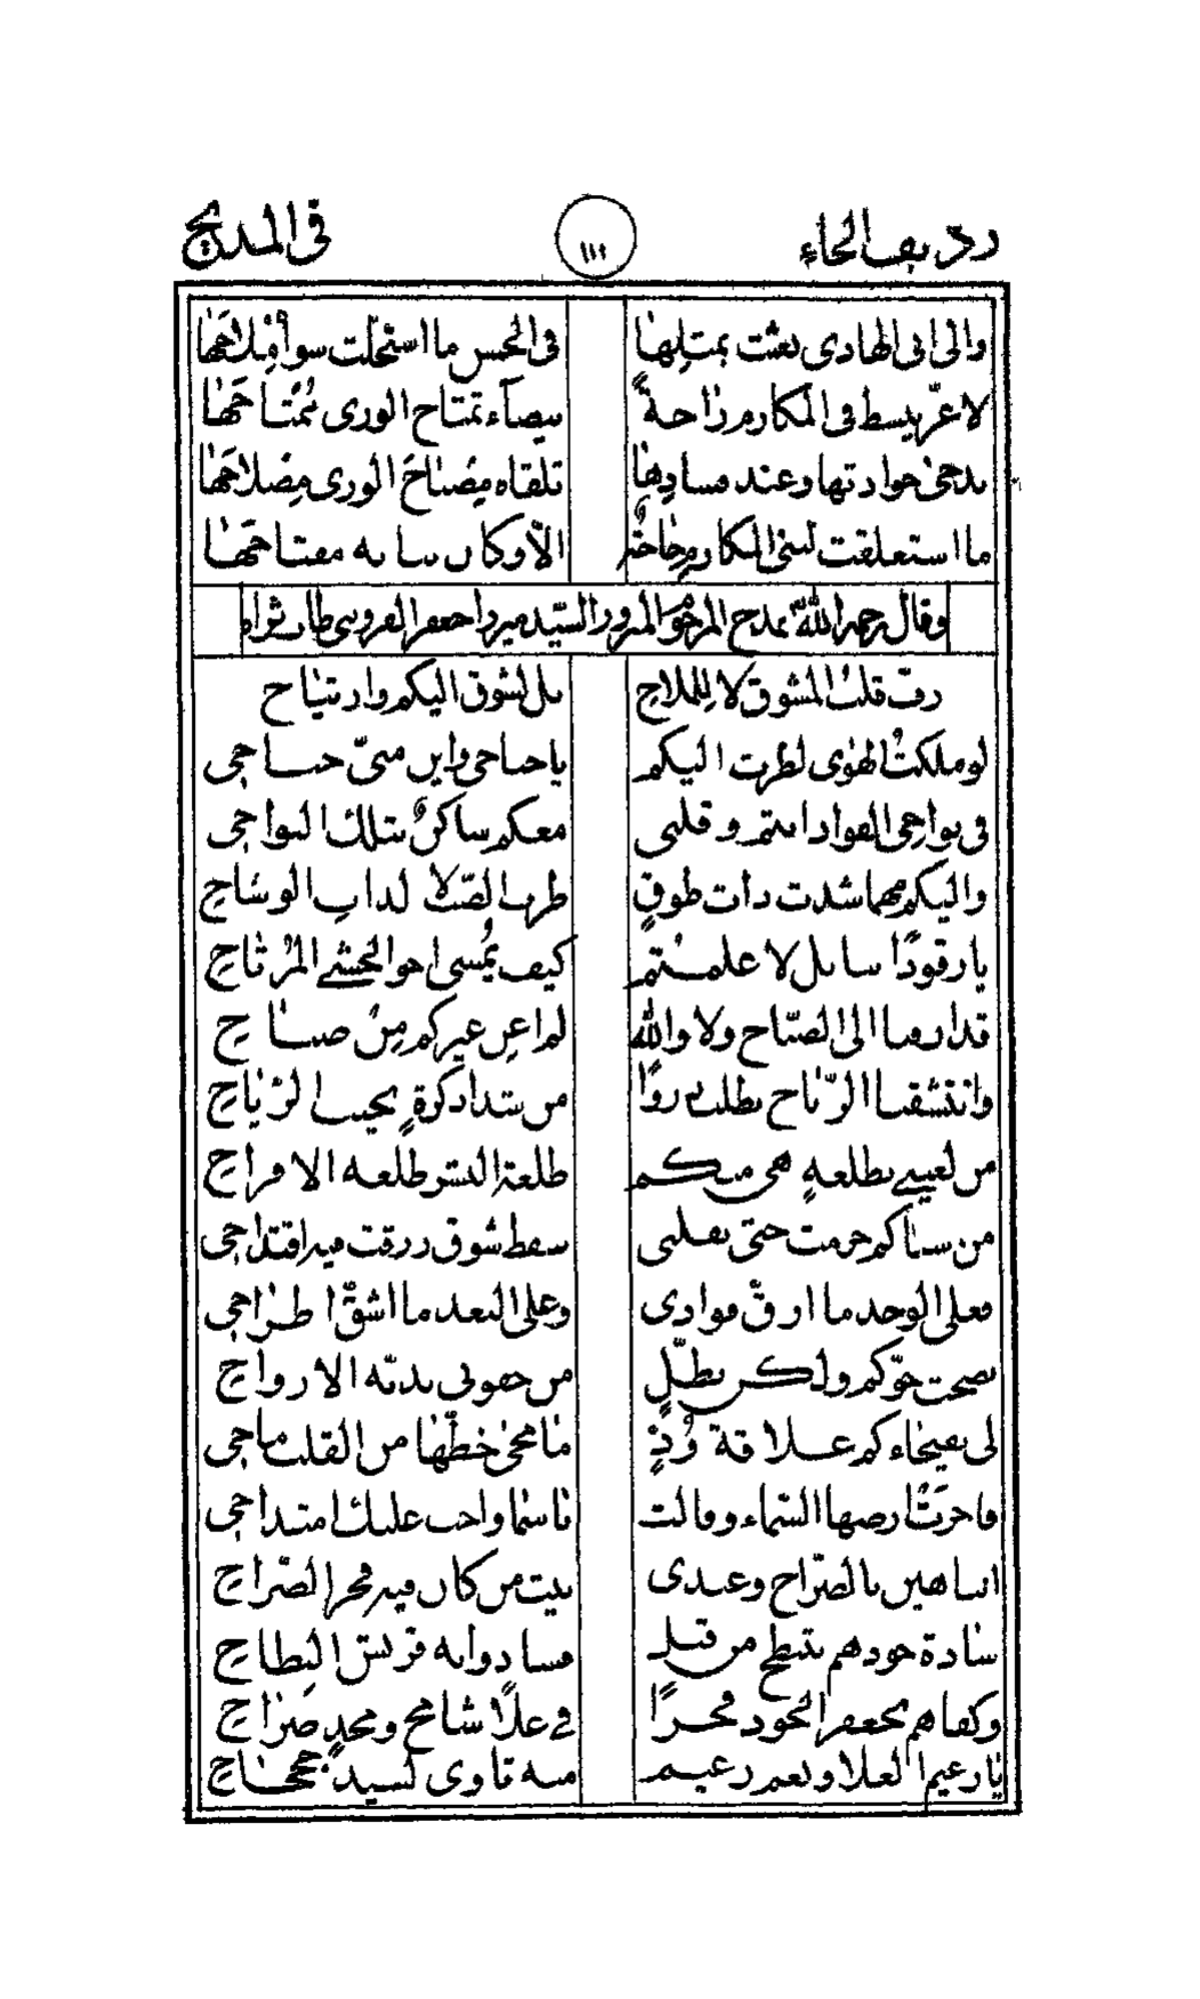 رديف الحاء ١١١ في المديح
والى ابى الهادى بعثت بمثلها في الحسن ما استحلت سواه ملاحها
لاغرّ يبسط في المكارم راحةً بيضآء تمتاح الورى ممتاحها
بدجى حوادثها وعند فسادها تلقاه مصباح الورى مصلاحها
ما استعلقت لبنى المكارم حاجةٌ الّا وكان بنانه مفتاحها
وقال رحمه الله يمدح المرحوم المبرور السيّد ميرزا جعفر القزوينى طاب ثراه
رقّ قلب المشوق لا للملاح بل لشوق اليكم وارتياح
لو ملكت الهوى لطرت اليكم يا جناحى واين منّى جناحى
في نواحى الفؤاد انتم وقلبى معكم ساكنٌ بتلك النواحى
واليكم مهما شدت ذات طوقٍ طربا لا لذات الوشاح
يا رقودًا بابل لا علمتم كيف يمسى اخو الحشى المرتاح
قد ارقنا الى الصباح ولا والله لم اعن غيركم من صباح
وانتشقنا الرياح نطلب روحًا من شذا ذكرةٍ بجيب الرياح
من لعينى بطلعةٍ هى منكم طلعة البشر طلعة الافراح
من سناكم حرمت حتى بقلبى سقط شوق رزقت فيه اقتداحى
فعلى الوجد ما ارقّ فؤادى وعلى البعد ما اشقّ اطراحى
صحت جوّكم ولكن بطلّ من جفونى بدنه الارواح
لى بفيحاءكم علاقة ودٍّ ما محى خطّها من القلب ماحى
فاخرت ارضها السماء وقالت يا سما واجب عليك امتداحى
اتباهين بالضراح وعندى بيت من كان فيه فخر الضراح
سادة جودهم تبطح من قبل فسادوا به قريش البطاح
وكفاهم بجعفر الجود فخرًا في علًا شامخ ومجدٍ صراح
يا زعيم العلا ونعم زعيم منه تأوى لسيدٍ جحجاح